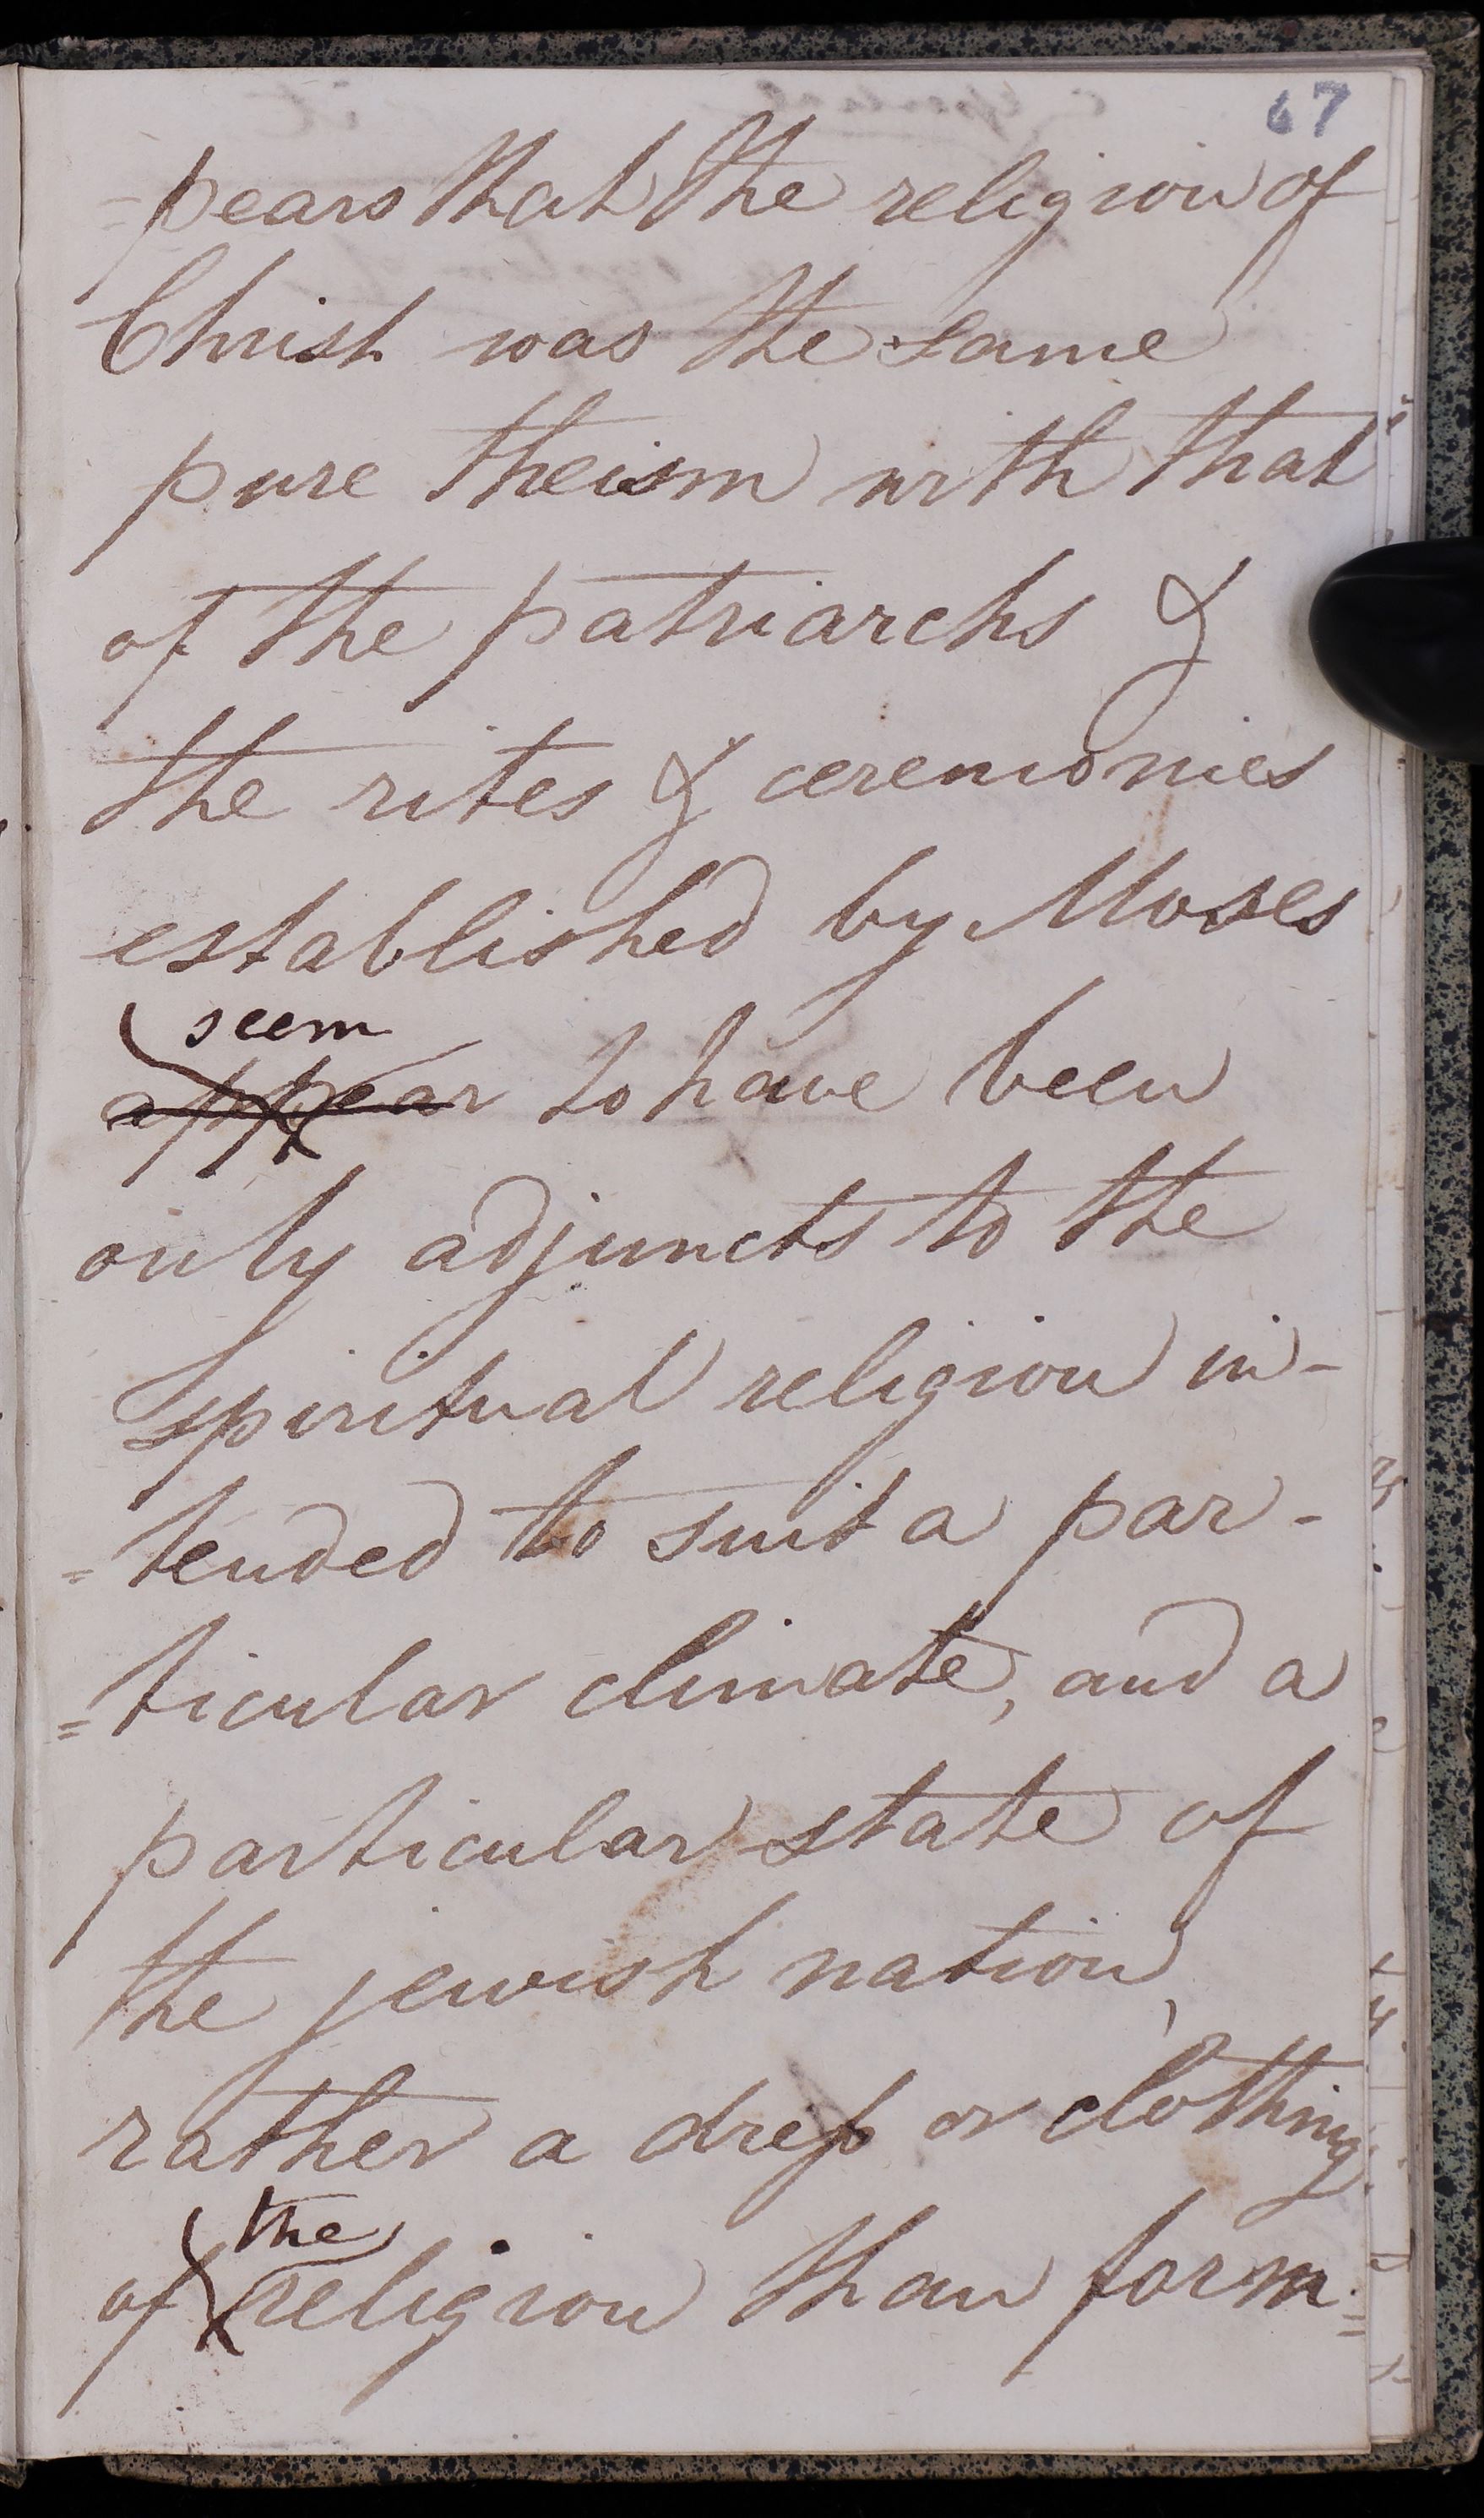 67
=pears that the religion of
Christ was the same
pure theism with that
of the patriarchs &
the rites & ceremonies
established by Moses
seem
appear to have been
only adjuncts to the
spiritual religion in-
=tended to suit a par-
=ticular climate, and a
particular state of
the jewish nation,
rather a dress or clothing
the
of religion than form=